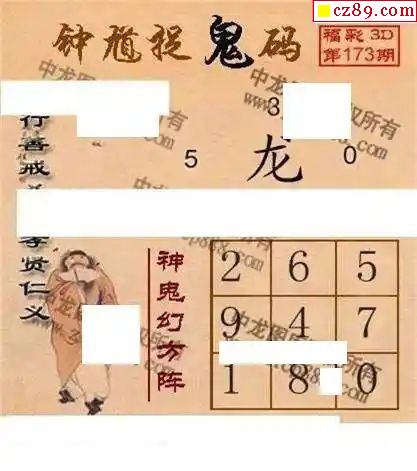 cz89.com
钟馗捉鬼码
福彩3D
第173期
3
5 龙 0
行善戒
孝贤仁义
神鬼幻方阵
2 6 5
9 4 7
1 8 0